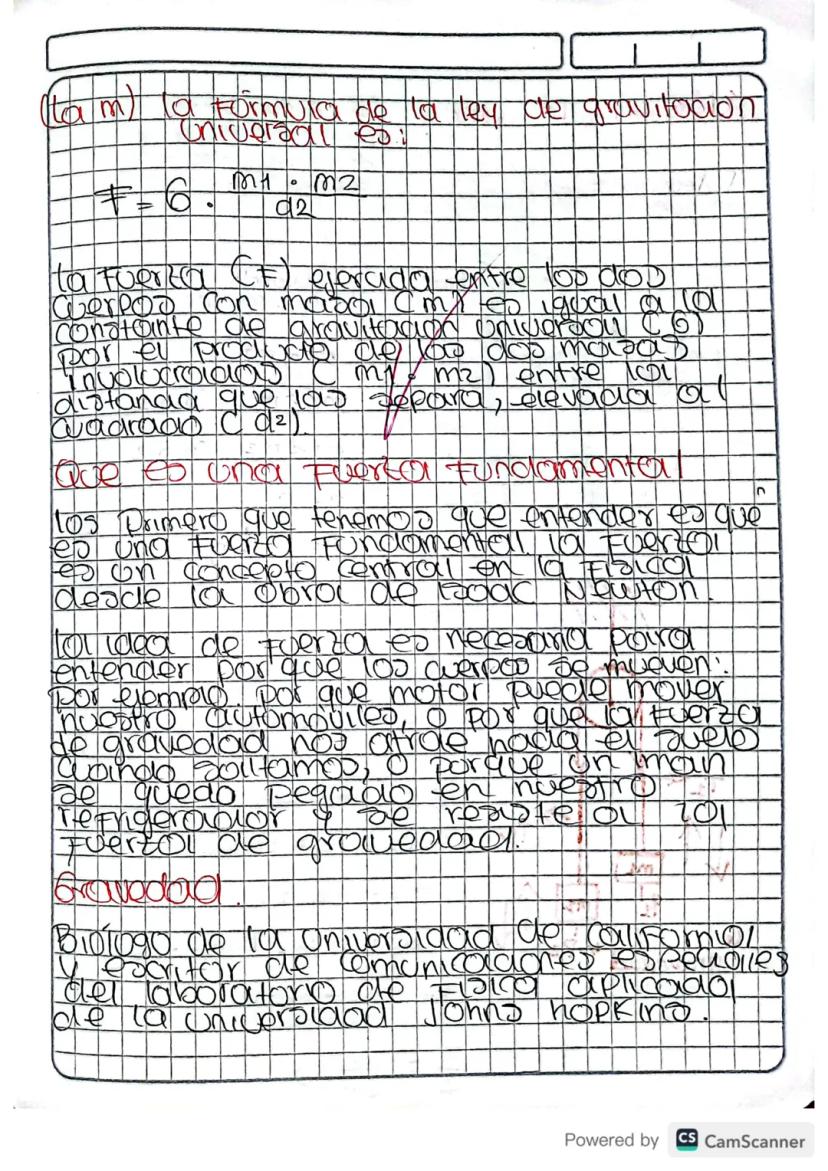 (La m) la fórmula de la ley de gravitación
universal es:
F = G · m1 · m2
d2
La fuerza (F) ejercida entre los dos
cuerpos con masa (m) es igual a la
constante de gravitación universal (G)
por el producto de las dos masas
involucradas (m1 · m2) entre la
distancia que las separa, elevada al
cuadrado (d2).
Que es una fuerza fundamental
los primero que tenemos que entender es qué
es una fuerza fundamental. la fuerza
es un concepto central en la física
desde la obra de Isaac Newton.
la idea de fuerza es necesaria para
entender por que los cuerpos se mueven:
por ejemplo. por que motor puede mover
nuestro automóviles, o por que la fuerza
de gravedad nos atrae hacia el suelo
cuando saltamos, o porque un iman
se queda pegado en nuestro
refrigerador y se resiste a la
fuerza de gravedad.
Gravedad.
Biólogo de la universidad de california
y escritor de comunicaciones especiales
del laboratorio de Física aplicada
de la universidad Johns hopkins.
Powered by CS CamScanner